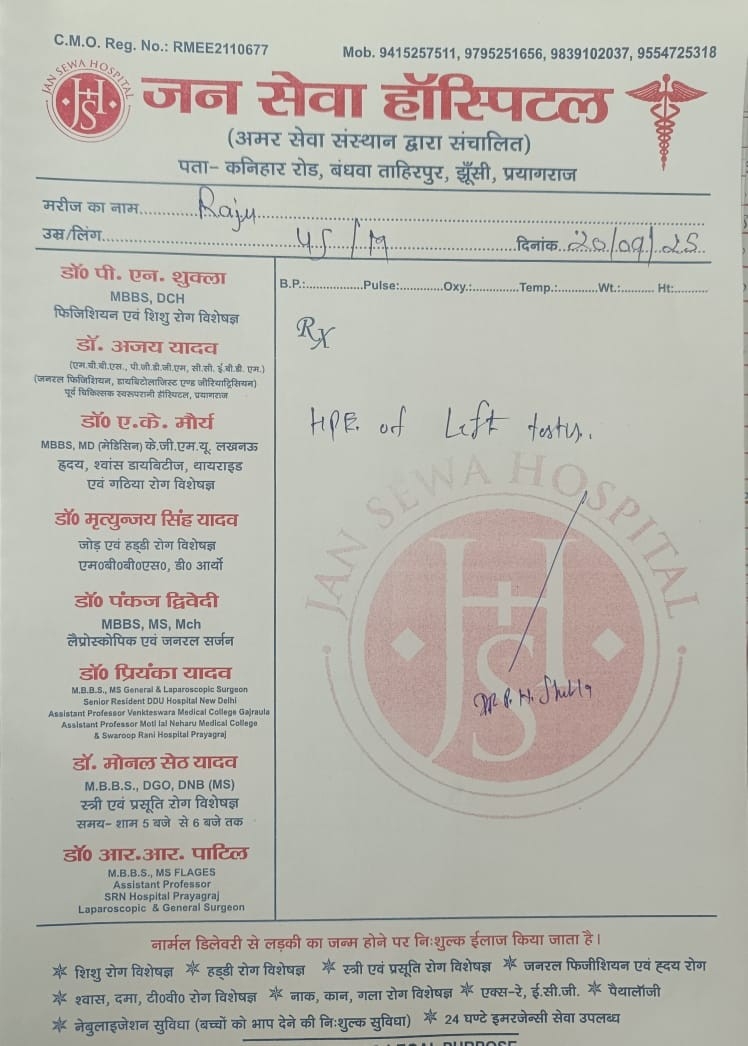 C.M.O. Reg. No.: RMEE2110677
Mob. 9415257511, 9795251656, 9839102037, 9554725318
JAN SEWA HOSPITAL
जन सेवा हॉस्पिटल
(अमर सेवा संस्थान द्वारा संचालित)
पता- कनिहार रोड, बंधवा ताहिरपुर, झूँसी, प्रयागराज
मरीज का नाम Raju
उम्र/लिंग 45 / M दिनांक 20/09/25
डॉ0 पी. एन. शुक्ला
MBBS, DCH
फिजिशियन एवं शिशु रोग विशेषज्ञ
डॉ. अजय यादव
(एम.बी.बी.एस., पी.जी.डी.जी.एम, सी.सी. ई.बी.डी. एम.)
(जनरल फिजिशियन, डायबिटोलाजिस्ट एण्ड जीरियाट्रिसियन)
पूर्व चिकित्सक स्वरूपरानी हॉस्पिटल, प्रयागराज
डॉ0 ए.के. मौर्य
MBBS, MD (मेडिसिन) के.जी.एम.यू. लखनऊ
ह्रदय, श्वांस डायबिटीज, थायराइड
एवं गठिया रोग विशेषज्ञ
डॉ0 मृत्युन्जय सिंह यादव
जोड़ एवं हड्डी रोग विशेषज्ञ
एम0बी0बी0एस0, डी0 आर्थो
डॉ0 पंकज द्विवेदी
MBBS, MS, Mch
लैप्रोस्कोपिक एवं जनरल सर्जन
डॉ0 प्रियंका यादव
M.B.B.S., MS General & Laparoscopic Surgeon
Senior Resident DDU Hospital New Delhi
Assistant Professor Venkteswara Medical College Gajraula
Assistant Professor Moti lal Neharu Medical College
& Swaroop Rani Hospital Prayagraj
डॉ. मोनल सेठ यादव
M.B.B.S., DGO, DNB (MS)
स्त्री एवं प्रसूति रोग विशेषज्ञ
समय- शाम 5 बजे से 6 बजे तक
डॉ0 आर.आर. पाटिल
M.B.B.S., MS FLAGES
Assistant Professor
SRN Hospital Prayagraj
Laparoscopic & General Surgeon
B.P.:.................Pulse:............Oxy.:.............Temp.:...........Wt.:.......... Ht:.........
Rx
HPE of Left testis.
JAN SEWA HOSPITAL
Dr. P. N. Shukla
नार्मल डिलेवरी से लड़की का जन्म होने पर निःशुल्क ईलाज किया जाता है।
शिशु रोग विशेषज्ञ हड्डी रोग विशेषज्ञ स्त्री एवं प्रसूति रोग विशेषज्ञ जनरल फिजीशियन एवं ह्दय रोग
श्वास, दमा, टी0वी0 रोग विशेषज्ञ नाक, कान, गला रोग विशेषज्ञ एक्स-रे, ई.सी.जी. पैथालॉजी
नेबुलाइजेशन सुविधा (बच्चों को भाप देने की निःशुल्क सुविधा) 24 घण्टे इमरजेन्सी सेवा उपलब्ध